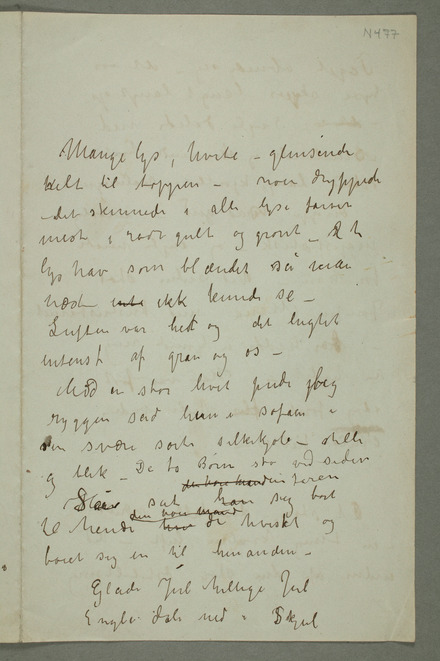 N 477
Mange lys, hvite – glinsende
helt til toppen – noen dryppende
– det skinnede i alle lyse farver
mest i rødt gult og grønt – Et
lyshav som blændet så man
næsten ikk kunde se –
Luften var hed og det lugtet
intenst af gran og os –
Med en stor hvit pude bag
ryggen sad hun i sofaen i
sin svære sorte silkekjole – stille
og blek – De to Børn stod ved siden
satt sig bort
til hende de hvisket og
bøiet sig en til hinanden –
Glade Jul hellige Jul
Engle dale ned i Skjul